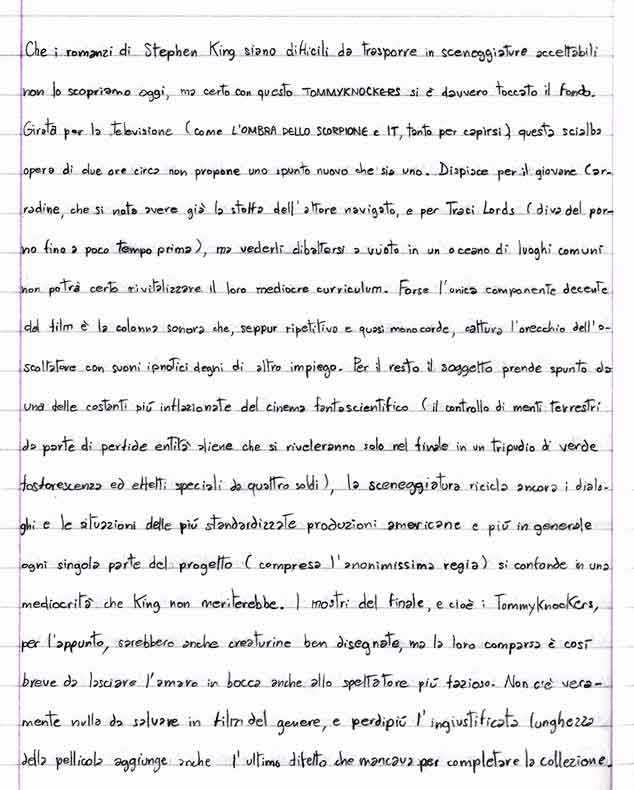 Che i romanzi di Stephen King siano difficili da trasporre in sceneggiature accettabili
non lo scopriamo oggi, ma certo con questo TOMMYKNOCKERS si è davvero toccato il fondo.
Girata per la televisione (come L'OMBRA DELLO SCORPIONE e IT, tanto per capirsi) questa scialba
opera di due ore circa non propone uno spunto nuovo che sia uno. Dispiace per il giovane Car-
radine, che si nota avere già la stoffa dell'attore navigato, e per Traci Lords (diva del por-
no fino a poco tempo prima), ma vederli dibattersi a vuoto in un oceano di luoghi comuni
non potrà certo rivitalizzare il loro mediocre curriculum. Forse l'unica componente decente
del film è la colonna sonora che, seppur ripetitiva e quasi monocorde, cattura l'orecchio dell'a-
scoltatore con suoni ipnotici degni di altro impiego. Per il resto il soggetto prende spunto da
una delle costanti più inflazionate del cinema fantascientifico (il controllo di menti terrestri
da parte di perfide entità aliene che si riveleranno solo nel finale in un tripudio di verde
fosforescenza ed effetti speciali da quattro soldi), la sceneggiatura ricicla ancora i dialo-
ghi e le situazioni delle più standardizzate produzioni americane e più in generale
ogni singola parte del progetto (compresa l'anonimissima regia) si confonde in una
mediocrità che King non meriterebbe. I mostri del finale, e cioè i TommyKnocKers,
per l'appunto, sarebbero anche creaturine ben disegnate, ma la loro comparsa è così
breve da lasciare l'amaro in bocca anche allo spettatore più fazioso. Non c'è vera-
mente nulla da salvare in film del genere, e perdipiù l'ingiustificata lunghezza
della pellicola aggiunge anche l'ultimo difetto che mancava per completare la collezione.